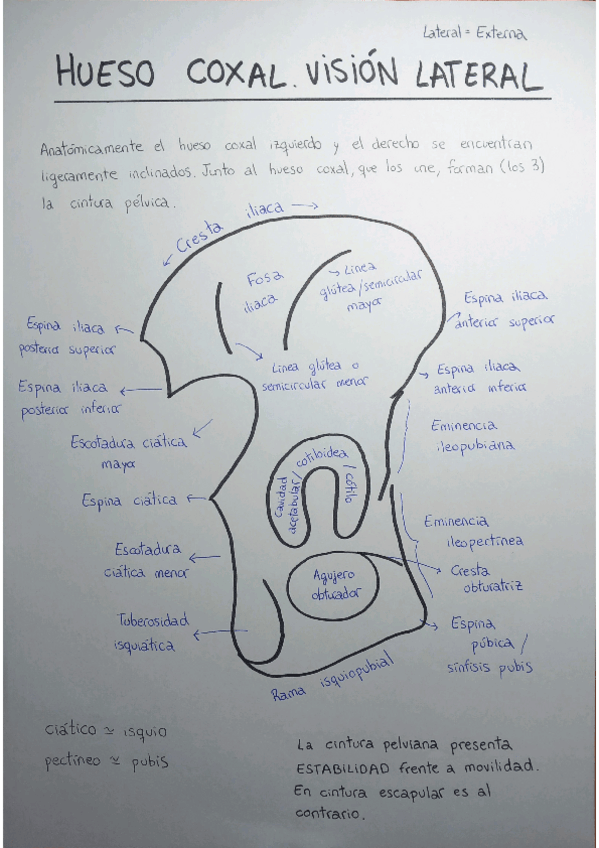 Lateral = Externa
HUESO COXAL. VISIÓN LATERAL
Anatómicamente el hueso coxal izquierdo y el derecho se encuentran
ligeramente inclinados. Junto al hueso coxal, que los une, forman (los 3)
la cintura pélvica.
Cresta iliaca
Fosa
iliaca
Linea
glútea/semicircular
mayor
Espina iliaca
anterior superior
Espina iliaca
posterior superior
Linea glútea o
semicircular menor
Espina iliaca
anterior inferior
Espina iliaca
posterior inferior
Eminencia
ileopubiana
Escotadura ciática
mayor
Cavidad
acetabular/
cotiloidea
/cótilo
Espina ciática
Eminencia
ileopectinea
Escotadura
ciática menor
Agujero
obturador
Cresta
obturatriz
Tuberosidad
isquiática
Espina
púbica /
sínfisis pubis
Rama isquiopubial
ciático ≃ isquio
pectíneo ≃ pubis
La cintura pelviana presenta
ESTABILIDAD frente a movilidad.
En cintura escapular es al
contrario.